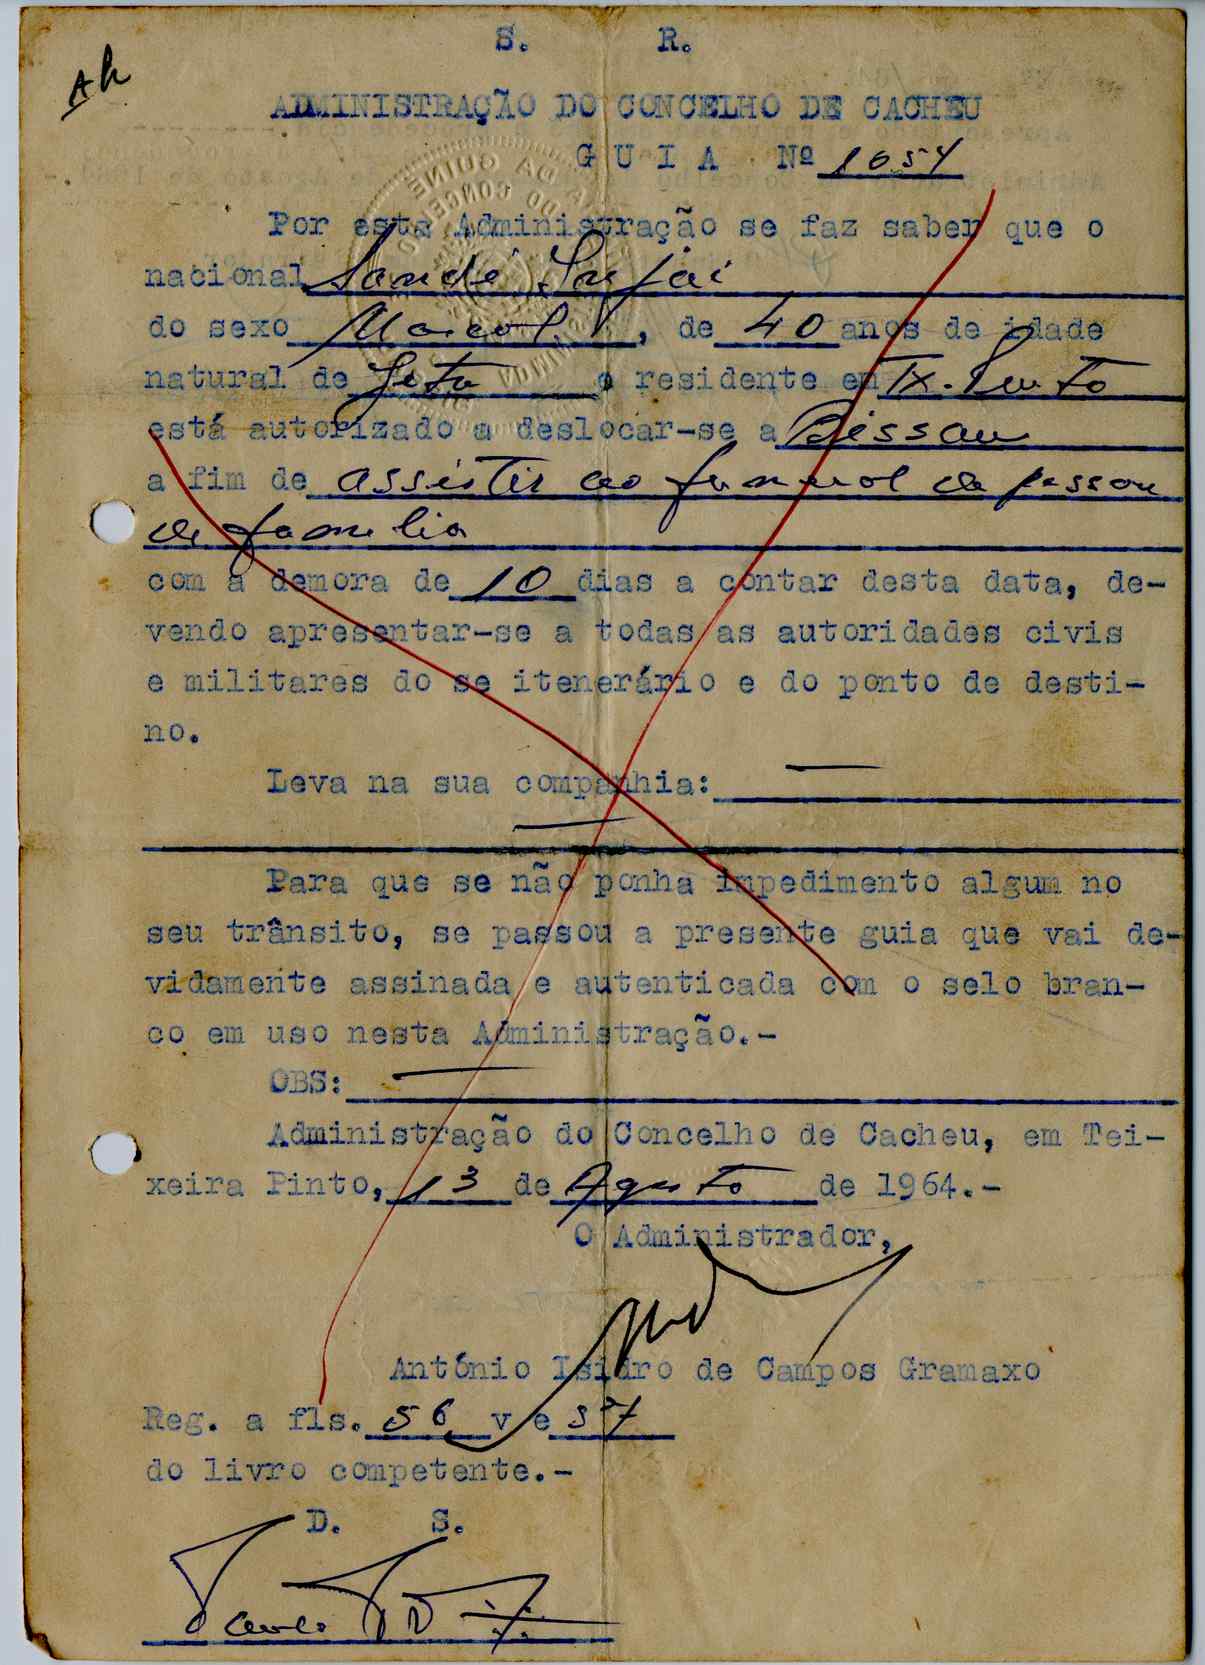 Ah
S. R.
ADMINISTRAÇÃO DO CONCELHO DE CACHEU
GUIA Nº 1654
Por esta Administração se faz saber que o
nacional Sandé Injai
do sexo Mascol., de 40 anos de idade
natural de Jeta e residente em Tx. Pinto
está autorizado a deslocar-se a Bissau
a fim de assistir ao funeral de pessoa
de familia
com a demora de 10 dias a contar desta data, de-
vendo apresentar-se a todas as autoridades civis
e militares do se itenerário e do ponto de desti-
no.
Leva na sua companhia:
Para que se não ponha impedimento algum no
seu trânsito, se passou a presente guia que vai de-
vidamente assinada e autenticada com o selo bran-
co em uso nesta Administração.-
OBS:
Administração do Concelho de Cacheu, em Tei-
xeira Pinto, 13 de Agosto de 1964.-
O Administrador,
António Isidro de Campos Gramaxo
Reg. a fls. 56 v e 57
do livro competente.-
D. S.